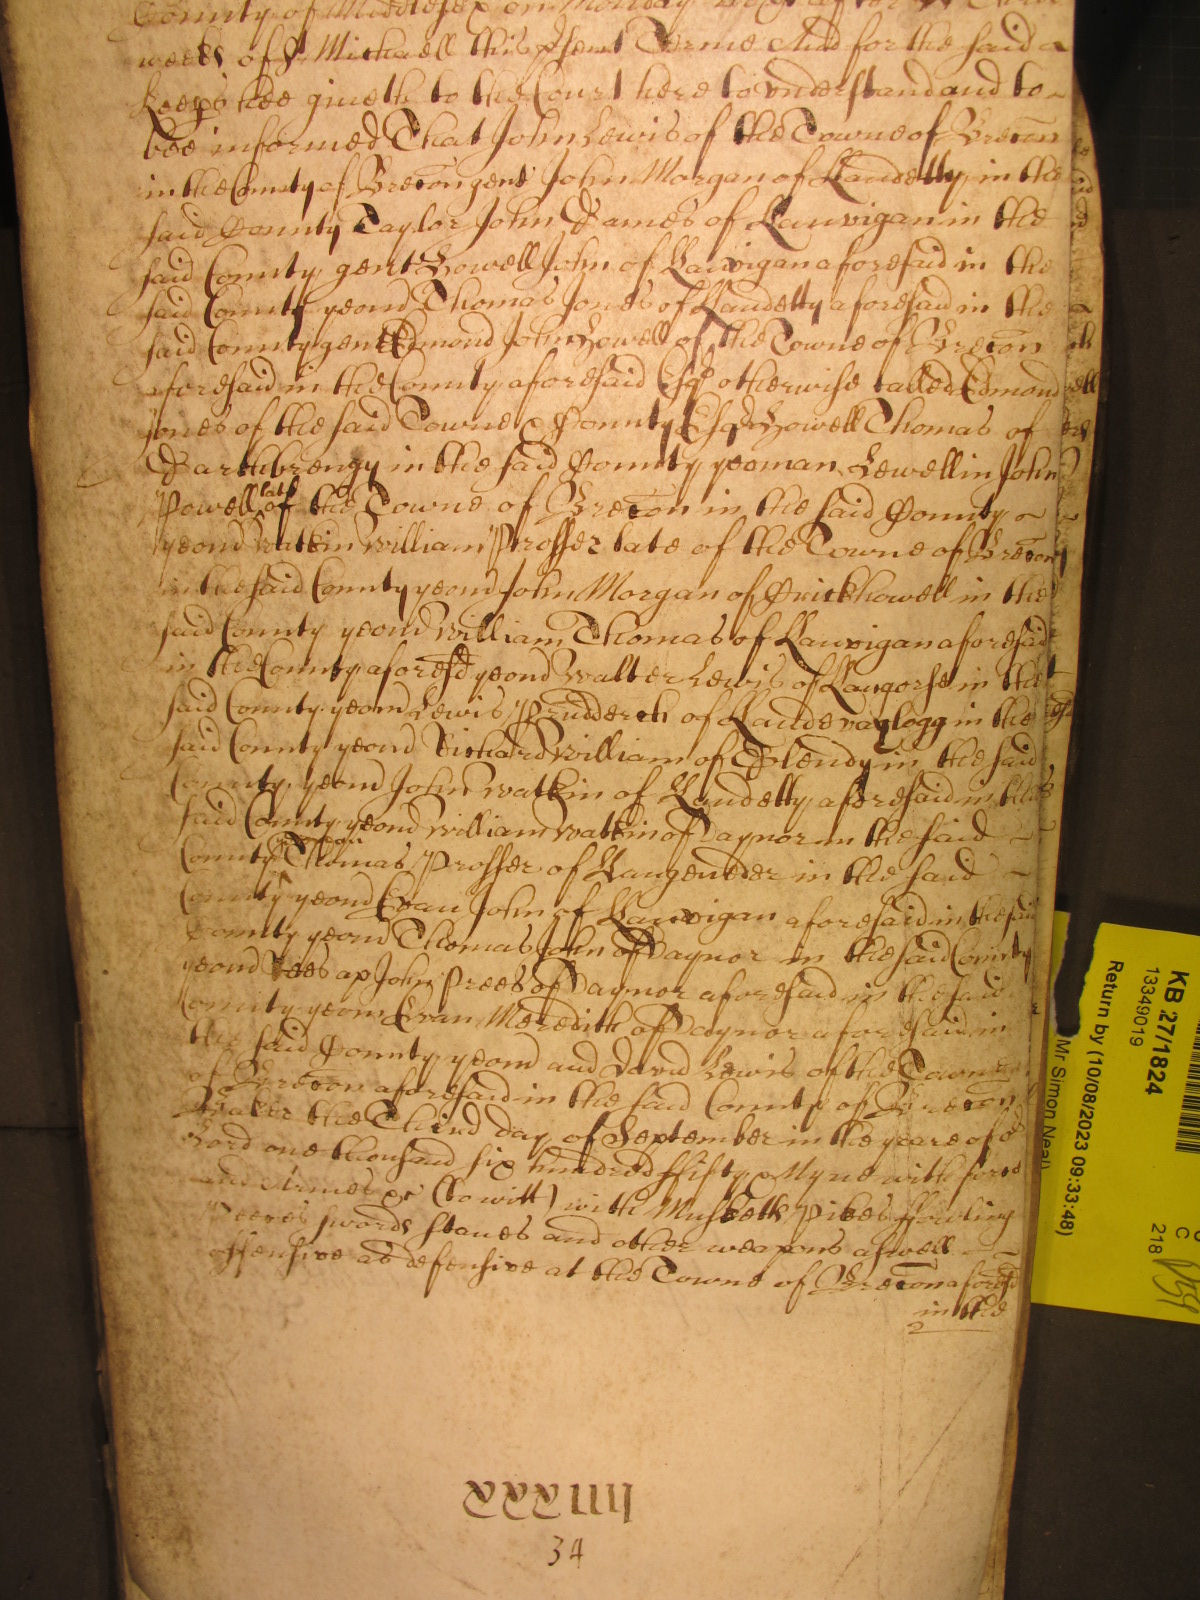 County of Middlesex on Monday next after
weeks of St Michaell this psent Terme And for the said
Keeps hee giueth to the Court here to vnderstand and to
bee informed That John Lewis of the Towne of Brecon
in the County of Brecon gent John Morgan of Llandetty in the
said County Taylor John James of Lanvigan in the
said County gent Howell John of Lanvigan aforesaid in the
said County yeom Thomas Jones of Llandetty aforesaid in the
said County gent Edmond John Howell of the Towne of Brecon
aforesaid in the County aforesaid Esqr otherwise called Edmond
Jones of the said Towne & County Esqr Howell Thomas of
Parthbrengy in the said County yeoman Lewellin John
Powell late of the Towne of Brecon in the said County
yeom Watkin William Prosser late of the Towne of Brecon
in the said County yeom John Morgan of Crickhowell in the
said County yeom William Thomas of Llanvigan aforesaid
in the County aforesd yeom Walter Lewis of Langorse in the
said County yeom Lewis Prudderch of Llandevaylogg in the
said County yeom Richard William of in the said
County yeom John Watkin of Landetty aforesaid in the
said County yeom William Watkin of Daynor in the said
County yeom Thomas Prosser of Llangeneder in the said
County yeom Evan John of Lanvigan aforesaid in the said
County yeom Thomas John of Daynor in the said County
yeom Rees ap John Prees of Daynor aforesaid in the said
County yeom Evan Meredith of Daynor aforesaid in
the said County yeom and David Lewis of the Towne
of Brecon aforesaid in the said County of Brecon
the Third day of September in the yeare of or
Lord one thousand six hundred ffifty & Nyne with force
and Armes &c (to witt) with Musketts Pikes ffowling
Peeces swords staues and other weapons aswell
offensive as defensive at the Towne of Brecon aforesd
in the
34
KB 27/1824
13349019
Return by (10/08/2023 09:33:48)
Mr Simon Neal
C
218